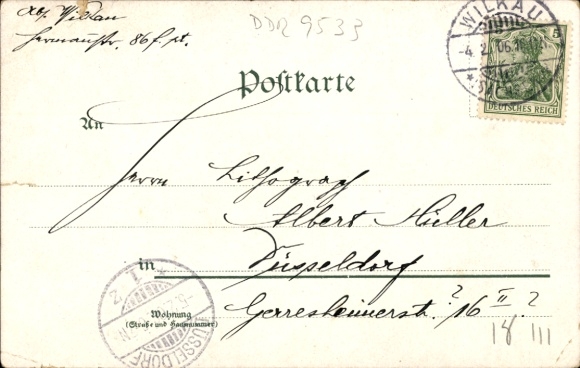 Abs. Wilkau
Hermannstr. 86 f. pt.
DDR 9533
WILKAU
-4.2.06.
5
DEUTSCHES REICH
Postkarte
An
Herrn Lithograph
Albert Müller
in Düsseldorf
Wohnung
(Straße und Hausnummer)
Gerresheimerstr. ? 16 II ?
18 III
DÜSSELDORF